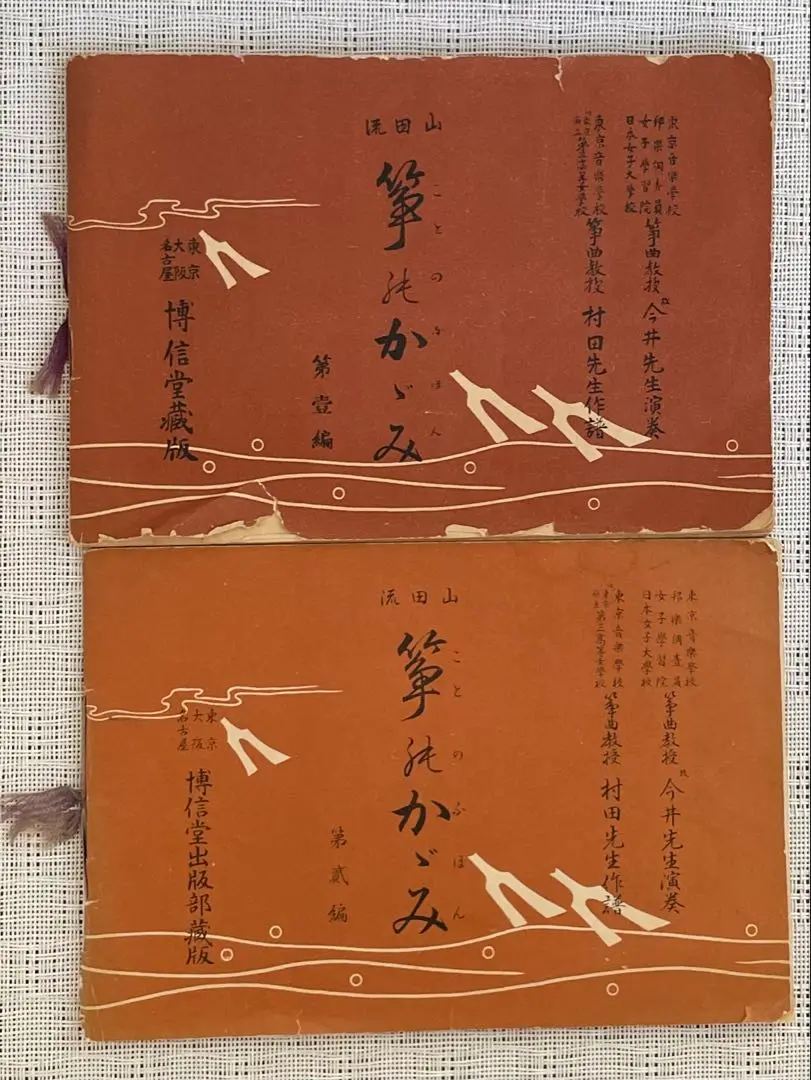 東京音樂學校
邦樂調査員
女子學習院
日本女子大學校
箏曲教授 故 今井先生演奏
東京音樂學校
第三高等女學校
箏曲教授 村田先生作譜
山田流
箏能かゞみ
ことのふほん
第壹編
東京
大阪
名古屋
博信堂藏版
東京音樂學校
邦樂調査員
女子學習院
日本女子大學校
箏曲教授 故 今井先生演奏
東京音樂學校
第三高等女學校
箏曲教授 村田先生作譜
山田流
箏能かゞみ
ことのふほん
第貳編
東京
大阪
名古屋
博信堂出版部藏版